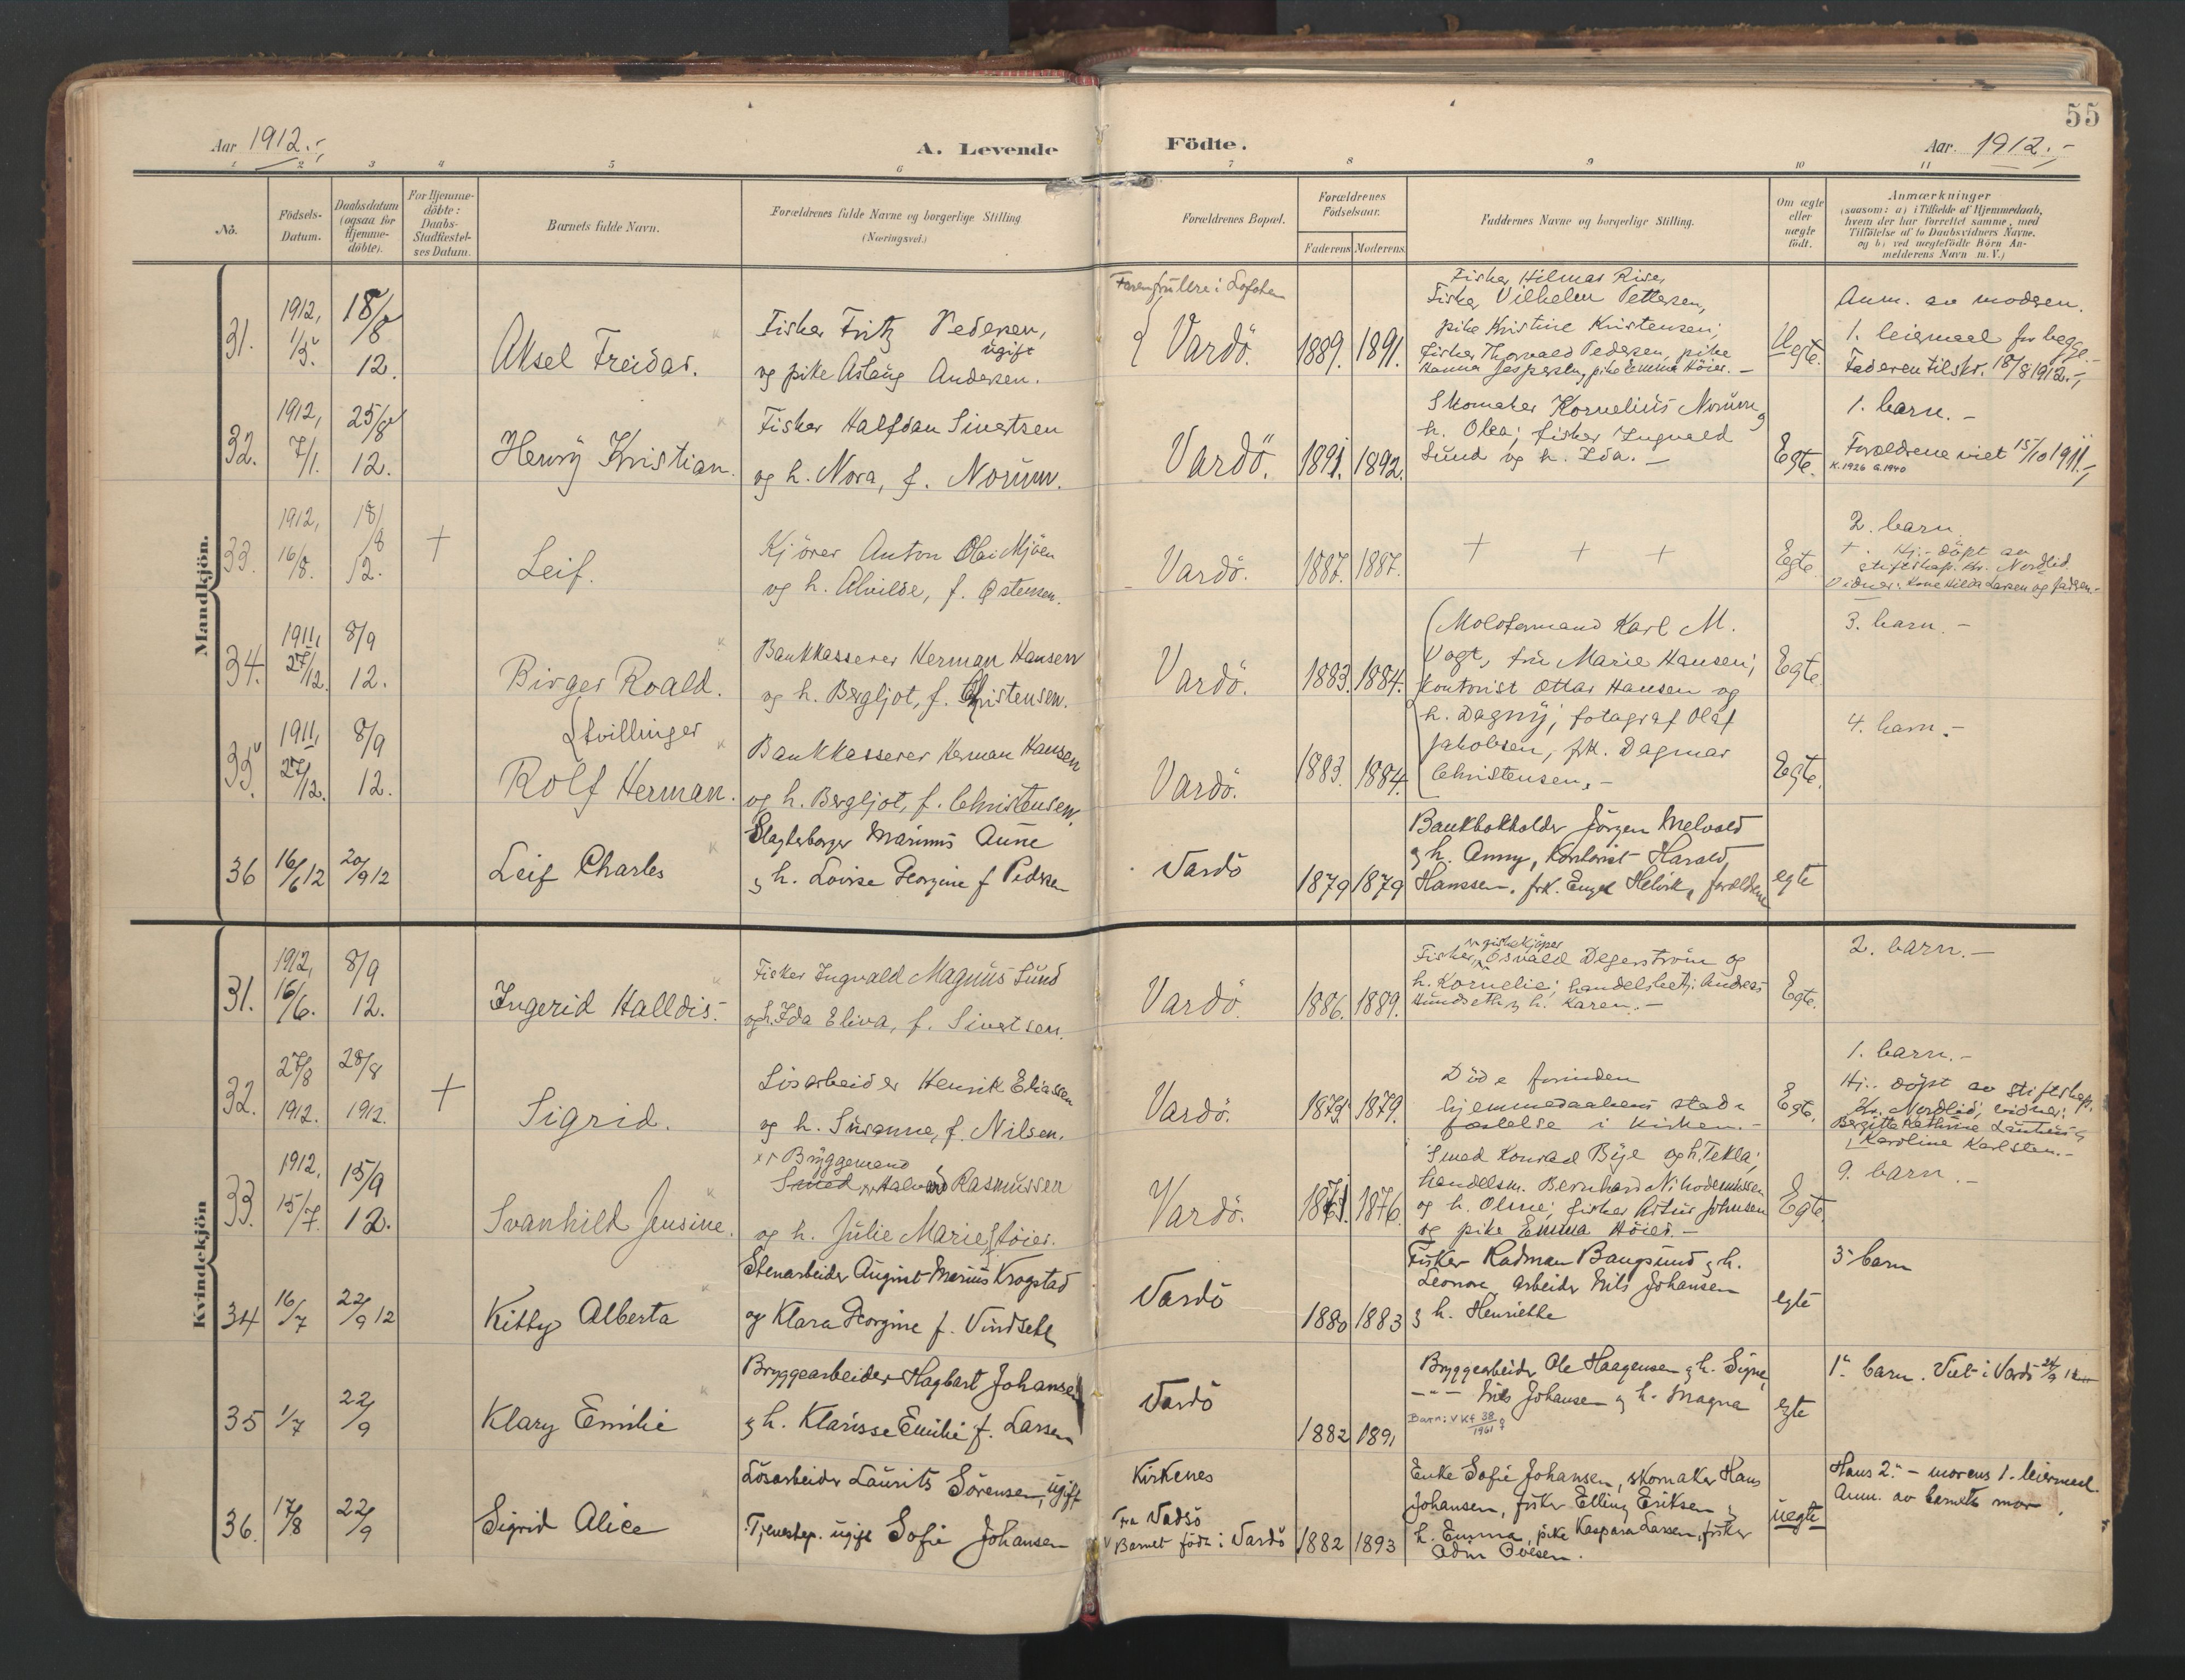 55
Aar 1912.-
A. Levende Fødte.
Aar. 1912.-
1 2 3 4 5 6 7 8 9 10 11
No.
Födsels-
Datum.
Daabsdatum
(ogsaa for
Hjemme-
döbte).
For Hjemme-
döbte:
Daabs-
Stadfæstel-
ses Datum.
Barnets fulde Navn.
Forældrenes fulde Navne og borgerlige Stilling
(Næringsvei.)
Forældrenes Bopæl.
Forældrenes
Födselsaar.
Faderens Moderens
Faddernes Navne og borgerlige Stilling.
Om ægte
eller
uægte
födt.
Anmærkninger
(saasom: a) i Tilfælde af Hjemmedaab,
hvem der har forrettet samme, med
Tilföielse af to Daabsvidners Navne,
og b) ved uægtefödte Börn An-
melderens Navn m. V.)
Mandkjön.
31.
1912,
1/5.
18/8
12.
Aksel Freidar.
Fisker Fritz Pedersen,
ugift
og pike Aslaug Andersen.
Vardö.
1889. 1891.
Fisker Hilmar Riise,
Fisker Vilhelm Pettersen,
pike Kristine Kristensen;
fisker Thorvald Pedersen, pike
Hanna Jespersen, pike Emma Höier. -
Uegte.
Anm. av moderen.
1. leiermaal for begge.-
Faderen tilskr. 18/8 1912.-
32.
1912,
7/1.
25/8
12.
Henry Kristian.
Fisker Halfdan Sivertsen
og h. Nora, f. Norum.
Vardö.
1891. 1892.
Skomaker Kornelius Norum og
h. Olea; fisker Ingvald
Sund og h. Ida. -
Egte.
1. barn. -
Forældrene viet 15/10 1911.-
K. 1926 G. 1940
33.
1912,
16/8.
18/8
12.
+
Leif.
Kjörer Anton Olai Mjöen
og h. Alvilde, f. Østensen.
Vardö.
1887. 1887.
+ + +
Egte.
2. barn.
+. Hj.-döpt av
stiftskap. Kr. Nordlid.
Vidner: Kone Hilda Larsen og faderen.-
34.
1911,
27/12.
8/9
12.
Birger Roald.
Bankkasserer Herman Hansen
og h. Bergljot, f. Christensen.
Vardö.
1883. 1884.
Moloformand Karl M.
Vogt, fru Marie Hansen;
kontorist Ottar Hansen og
h. Dagny; fotograf Olaf
Jakobsen, frk. Dagmar
Christensen. -
Egte.
3. barn. -
tvillinger
35.
1911,
27/12.
8/9
12.
Rolf Herman.
Bankkasserer Herman Hansen
og h. Bergljot, f. Christensen.
Vardö.
1883. 1884.
Egte.
4. barn. -
36
16/6 12
20/9 12
Leif Charles
Slagterborger Marinus Aune
og h. Lovise Georgine f Pedersen
Vardö
1879 1879
Bankbokholder Jörgen Melvold
og h. Anny, Kontorist Harald
Hanssen, frk. Engel Helvik, forældrene
egte
Kvindekjön
31.
1912,
16/6.
8/9
12.
Ingerid Halldis.-
Fisker Ingvald Magnus Sund
og h. Ida Eliva, f. Sivertsen.
Vardö.
1886. 1889.
og fiskekjöper
Fisker, Osvald Degerström og
h. Kornelie; handelsbetj. Andreas
Hundseth og h. Karen. -
Egte.
2. barn. -
32.
27/8
1912.
28/8
1912.
+
Sigrid.
Lösarbeider Henrik Eliassen
og h. Susanne, f. Nilsen.
Vardö.
1879. 1879.
Döde forinden
hjemmedaabens stad-
fæstelse i kirken. -
Egte.
1. barn. -
Hj.. döpt av stiftskap.
Kr. Nordlid; vidner:
Bergitte Kathrine
Karoline Karlsten. -
33.
1912,
15/7.
15/9
12.
Svanhild Jensine.
Bryggemand
Smed Halvard Rasmussen
og h. Julie Marie Höier.
Vardö.
1871. 1876.
Smed Konrad Bye og h. Tekla;
handelsm. Bernhard Nikodemussen
og h. Oline; fisker Artur Johnsen
og pike Emma Höier. -
Egte.
9. barn. -
34
16/7
22/9 12
Kitty Alberta
Stenarbeider August Marius Krogstad
og Klara Georgine f. Vindseth
Vardö
1880 1883
Fisker Radman Baugsund og h.
Leonore, arbeider Nils Johansen
og h. Henriette
egte
3 barn
35
1/7
22/9
Klary Emilie
Bryggearbeider Hagbart Johansen
og h. Klarisse Emilie f. Larsen
Vardö
1882 1891
Bryggearbeider Ole Haagensen og h. Signe,
-"- Nils Johansen og h. Magna
Barn: VKf 38/1961
egte
1. barn. Viet i Vardö 24/9
36.
17/8
22/9
Sigrid Alice
Lösarbeider Laurits Sörensen, ugift
Tjenestep. ugift Sofie Johansen
Kirkenes
fra Vadsö
Barnet födt i Vardö
1882 1893
Enke Sofie Johansen, skomaker Hans
Johansen, fisker Elling Eriksen og
h. Emma, pike Kaspara Larsen, fisker
uegte
Hans 2. - morens 1. leiermaal.
Anm. av barnets mor.